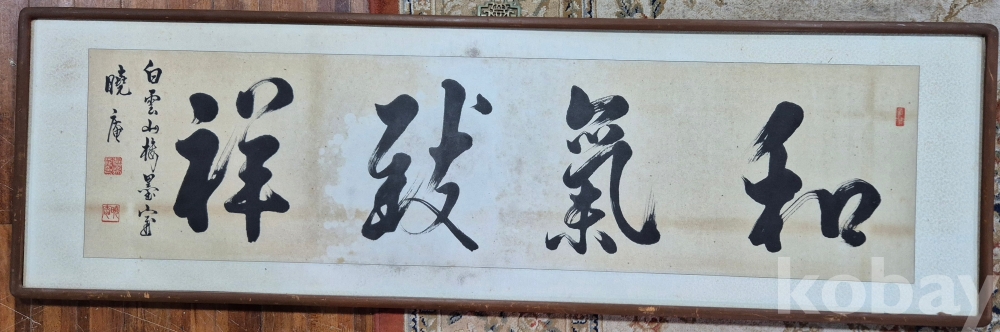 和氣致祥
白雲山樵墨室
曉庵
kobay